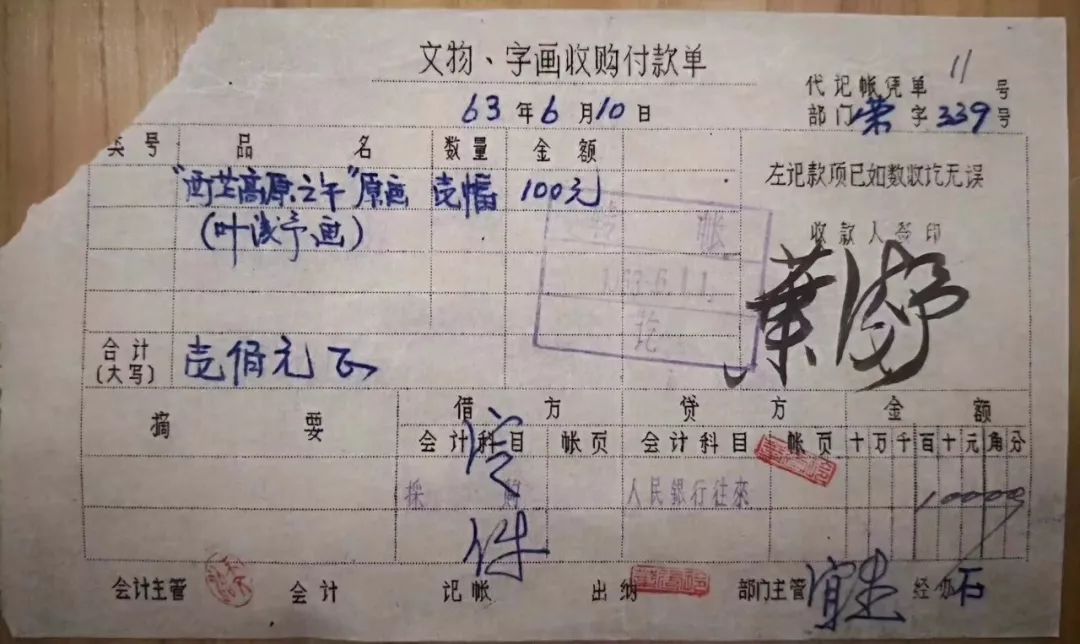 文物、字画收购付款单
代记帐凭单 11 号
63年6月10日
部门荣字339号
类号 品名 数量 金额
左记款项已如数收讫无误
"西芷高原之午"原画 壱幅 100元
(叶浅予画)
收款人签印
葉浅予
转帐
1963.6.11.
讫
合计
(大写) 壱佰元正
摘要 借方 贷方 金额
会计科目 帐页 会计科目 帐页 十万千百十元角分
採购 人民銀行往來 10000
件
会计主管 会计 记帐 出纳 部门主管 经办 石